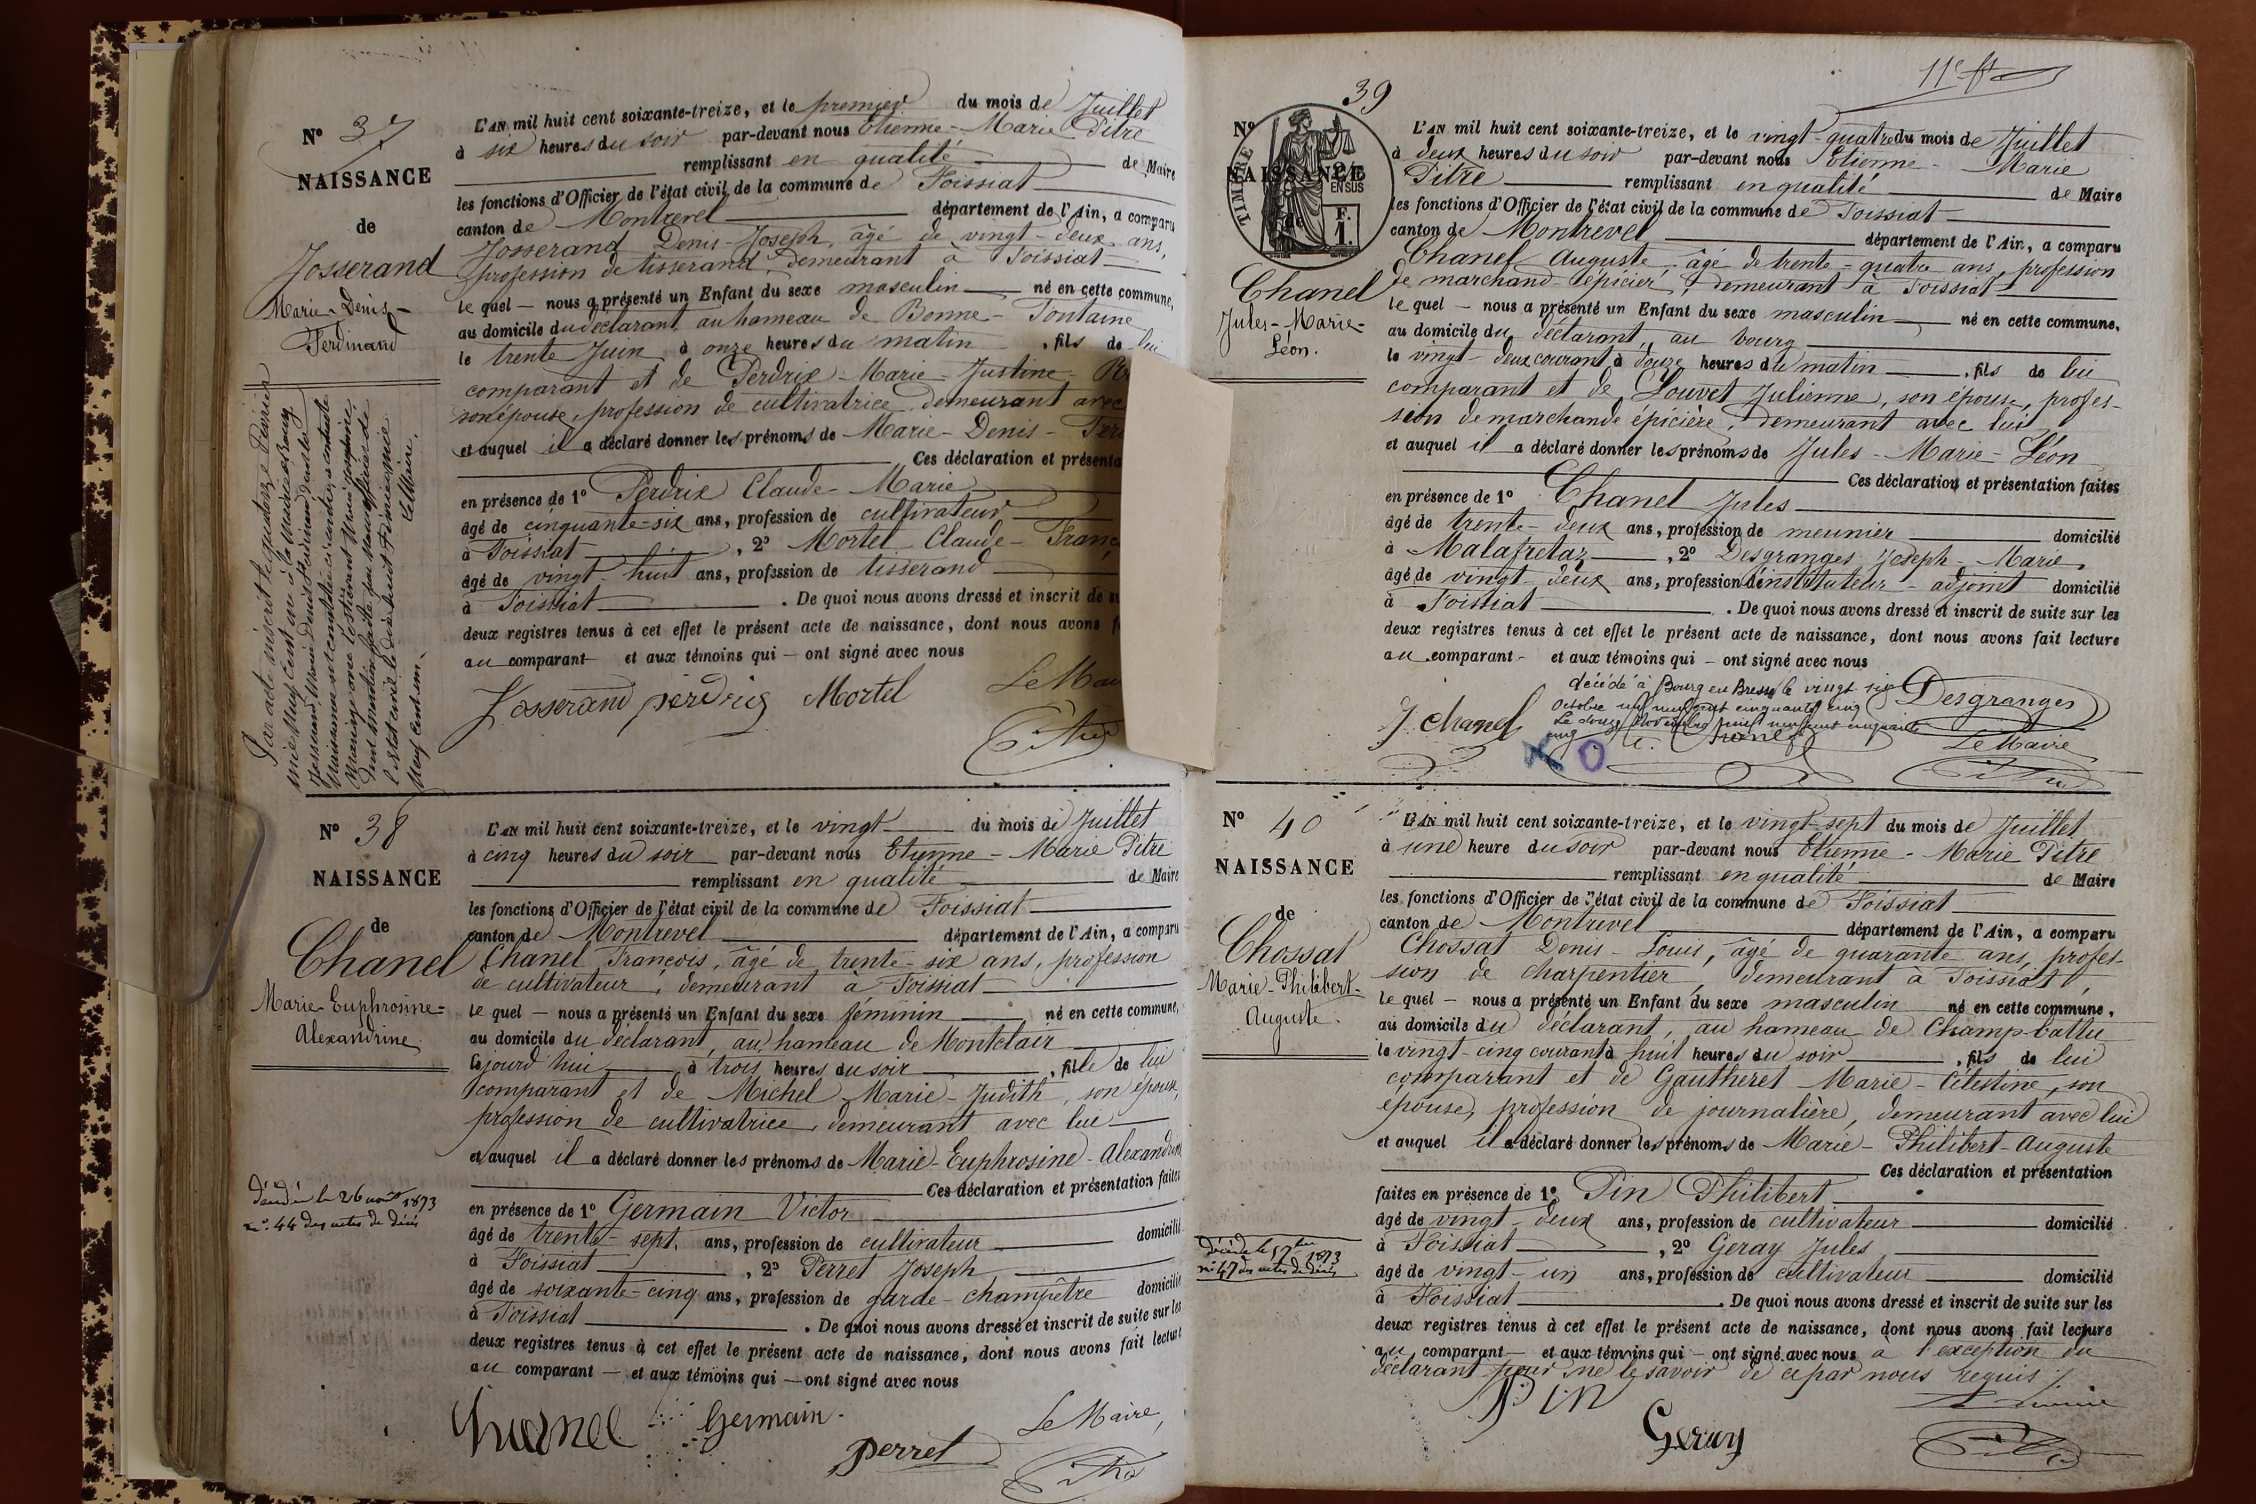 N° 37
NAISSANCE
de
Josserand
Marie-Denis-
Ferdinand
L'AN mil huit cent soixante-treize, et le premier du mois de Juillet
à six heures du soir par-devant nous Etienne-Marie Pitre
remplissant en qualité de Maire
les fonctions d'Officier de l'état civil de la commune de Foissiat
canton de Montrevel département de l'Ain, a comparu
Josserand Denis-Joseph, âgé de vingt-deux ans,
profession de tisserand, demeurant à Foissiat
le quel — nous a présenté un Enfant du sexe masculin né en cette commune,
au domicile du déclarant, au hameau de Bonne-Fontaine
le trente Juin à onze heures du matin, fils de lui
comparant et de Perdrix Marie-Justine
son épouse, profession de cultivatrice, demeurant avec
et auquel il a déclaré donner les prénoms de Marie-Denis-
Ces déclaration et
en présence de 1° Perdrix Claude-Marie
âgé de cinquante-six ans, profession de cultivateur
à Foissiat, 2° Mortel Claude-
âgé de vingt-huit ans, profession de tisserand
à Foissiat. De quoi nous avons dressé et inscrit de
deux registres tenus à cet effet le présent acte de naissance, dont nous avons
au comparant et aux témoins qui — ont signé avec nous
Josserand perdrix Mortel
Par acte inscrit le quatorze Février
mil neuf cent onze à la Mairie de Bourg,
Josserand, Marie Denis Ferdinand dont la
naissance est constatée ci-contre, a contracté
Mariage avec
l'état civil le dix huit Février mil
neuf cent onze. Le Maire.
N° 38
NAISSANCE
de
Chanel
Marie-Euphrosine-
Alexandrine
décédée le 26 août 1873
n° 44 des actes de décès
L'AN mil huit cent soixante-treize, et le vingt du mois de Juillet
à cinq heures du soir par-devant nous Etienne-Marie Pitre
remplissant en qualité de Maire
les fonctions d'Officier de l'état civil de la commune de Foissiat
canton de Montrevel département de l'Ain, a comparu
Chanel François, âgé de trente-six ans, profession
de cultivateur, demeurant à Foissiat
le quel — nous a présenté un Enfant du sexe féminin né en cette commune,
au domicile du déclarant, au hameau de Montclair
le jourd'hui à trois heures du soir, fille de lui
comparant et de Michel Marie-Judith, son épouse,
profession de cultivatrice, demeurant avec lui
et auquel il a déclaré donner les prénoms de Marie-Euphrosine-Alexandrine
Ces déclaration et présentation faites
en présence de 1° Germain Victor
âgé de trente-sept ans, profession de cultivateur domicilié
à Foissiat, 2° Perret Joseph
âgé de soixante-cinq ans, profession de garde-champêtre domicilié
à Foissiat. De quoi nous avons dressé et inscrit de suite sur les
deux registres tenus à cet effet le présent acte de naissance, dont nous avons fait lecture
au comparant — et aux témoins qui — ont signé avec nous
Chanel Germain. Le Maire,
perret Pitre
11e ft
39
N°
NAISSANCE
de
TIMBRE
2/10
EN SUS
F.
1.
Chanel
Jules-Marie-
Léon.
L'AN mil huit cent soixante-treize, et le vingt-quatre du mois de Juillet
à deux heures du soir par-devant nous Etienne-Marie
Pitre remplissant en qualité de Maire
les fonctions d'Officier de l'état civil de la commune de Foissiat
canton de Montrevel département de l'Ain, a comparu
Chanel Auguste, âgé de trente-quatre ans, profession
de marchand-épicier, demeurant à Foissiat
le quel — nous a présenté un Enfant du sexe masculin né en cette commune,
au domicile du déclarant, au bourg
le vingt-deux courant à douze heures du matin, fils de lui
comparant et de Louvet Julienne, son épouse, profes-
sion de marchande épicière, demeurant avec lui
et auquel il a déclaré donner les prénoms de Jules-Marie-Léon
Ces déclaration et présentation faites
en présence de 1° Chanel Jules
âgé de trente-deux ans, profession de meunier domicilié
à Malafretaz, 2° Desgranges Joseph-Marie,
âgé de vingt-deux ans, profession d'instituteur-adjoint domicilié
à Foissiat. De quoi nous avons dressé et inscrit de suite sur les
deux registres tenus à cet effet le présent acte de naissance, dont nous avons fait lecture
au comparant - et aux témoins qui — ont signé avec nous
décédé à Bourg en Bresse le vingt six
octobre mil neuf cent cinquante cinq
Le douze Novembre mil neuf cent cinquante
cinq
J. Chanel Desgranges
Le Maire
Pitre
N° 40
NAISSANCE
de
Chossat
Marie-Philibert-
Auguste.
1873
n° 47 des actes de décès
L'AN mil huit cent soixante-treize, et le vingt-sept du mois de Juillet
à une heure du soir par-devant nous Etienne-Marie Pitre
remplissant en qualité de Maire
les fonctions d'Officier de l'état civil de la commune de Foissiat
canton de Montrevel département de l'Ain, a comparu
Chossat Denis-Louis, âgé de quarante ans, profes-
sion de charpentier, demeurant à Foissiat,
le quel — nous a présenté un Enfant du sexe masculin né en cette commune,
au domicile du déclarant, au hameau de Champ-battu
le vingt-cinq courant à huit heures du soir, fils de lui
comparant et de Gautheret Marie-Célestine, son
épouse, profession de journalière, demeurant avec lui
et auquel il a déclaré donner les prénoms de Marie-Philibert-Auguste
Ces déclaration et présentation
faites en présence de 1° Pin Philibert
âgé de vingt-deux ans, profession de cultivateur domicilié
à Foissiat, 2° Geray Jules
âgé de vingt-un ans, profession de cultivateur domicilié
à Foissiat. De quoi nous avons dressé et inscrit de suite sur les
deux registres tenus à cet effet le présent acte de naissance, dont nous avons fait lecture
au comparant — et aux témoins qui — ont signé avec nous à l'exception du
déclarant pour ne le savoir de ce par nous requis.
Pin
Geray